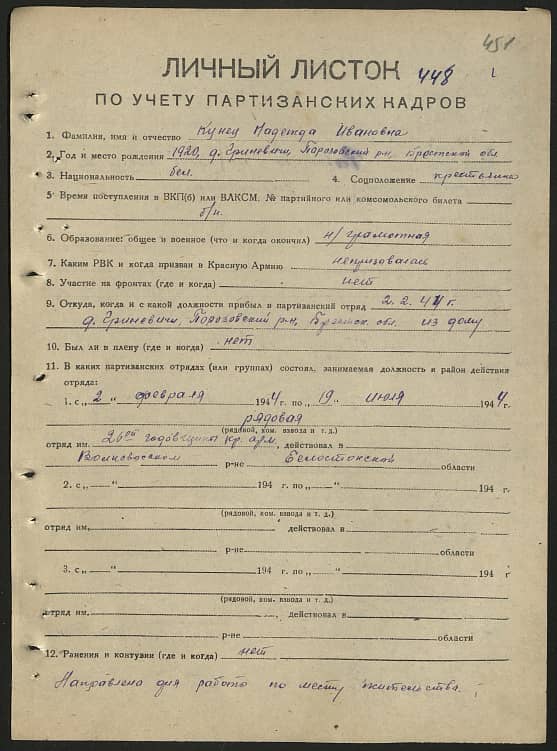 451
ЛИЧНЫЙ ЛИСТОК 448
ПО УЧЕТУ ПАРТИЗАНСКИХ КАДРОВ
1. Фамилия, имя и отчество Кунец Надежда Ивановна
2. Год и место рождения 1920, д. Гриневичи, Порозовский р-н, Брестской обл
3. Национальность бел. 4. Соцположение крестьянка
5. Время поступления в ВКП(б) или ВЛКСМ. № партийного или комсомольского билета
б/п.
6. Образование: общее и военное (что и когда окончил) н/грамотная
7. Каким РВК и когда призван в Красную Армию непризовалась
8. Участие на фронтах (где и когда) нет
9. Откуда, когда и с какой должности прибыл в партизанский отряд 2.2.44 г.
д. Гриневичи, Порозовский р-н, Брестск. обл. из дому
10. Был ли в плену (где и когда) нет
11. В каких партизанских отрядах (или группах) состоял, занимаемая должность и район действия
отряда:
1. с „ 2 “ февраля 1944 г. по „ 19 “ июля 1944 г.
рядовая
(рядовой, ком. взвода и т. д.)
отряд им. 26ой годовщины Кр. арм., действовал в
Волковысском р-не Белостокской области
2. с „ “ 194 г. по „ “ 194 г.
(рядовой, ком. взвода и т. д.)
отряд им. действовал в
р-не области
3. с „ “ 194 г. по „ “ 194 г
(рядовой, ком. взвода и т. д.)
отряд им. действовал в
р-не области
12. Ранения и контузии (где и когда) нет
Направлена для работы по месту жительства.